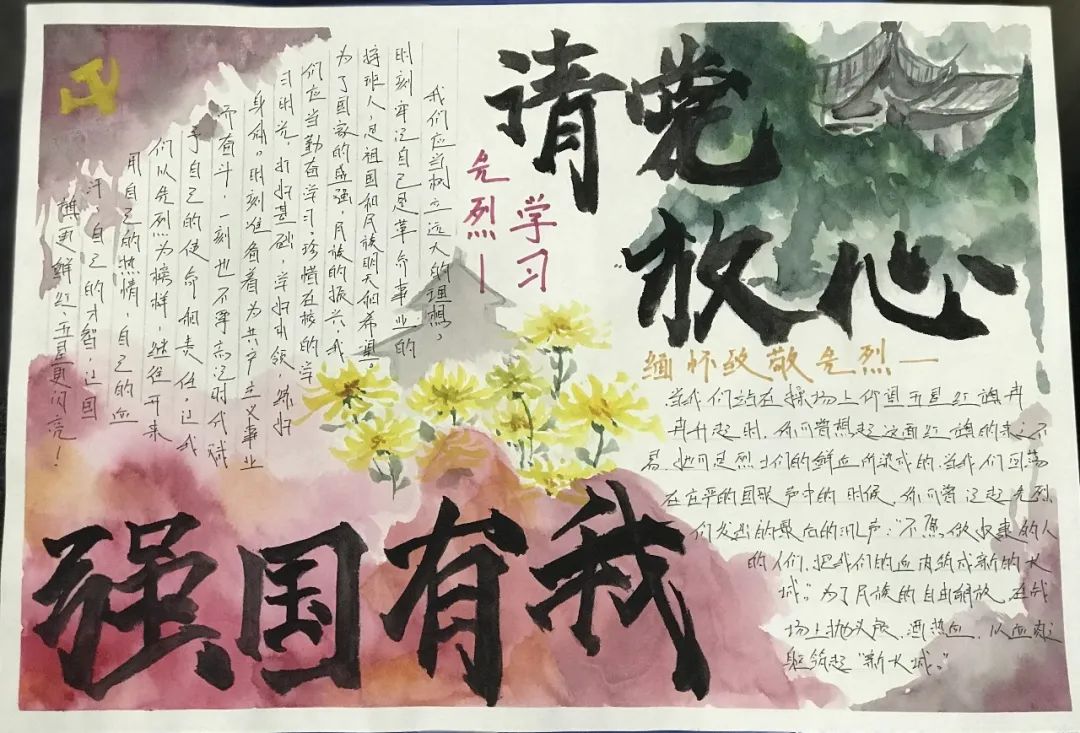 请党
放心
强国有我
学习
先烈—
我们应当树立远大的理想，
时刻牢记自己是革命事业的
接班人，是祖国和民族明天的希望。
为了国家的盛强，民族的振兴，我
们应当勤奋学习，珍惜在校的学
习时光，打好基础，学好本领，练好
身体。时刻准备着为共产主义事业
而奋斗，一刻也不要忘记时代赋
予自己的使命和责任，让我
们以先烈为榜样，继往开来
用自己的热情，自己的血
汗，自己的才智，让国
旗更鲜红，五星更闪亮！
缅怀致敬先烈—
当我们站在操场上仰望五星红旗冉
冉升起时，你可曾想起这面红旗的来之不
易，她可是烈士们的鲜血所染成的，当我们回荡
在庄严的国歌声中的时候，你可曾记起先烈
们发出的最后的吼声："不愿做奴隶的人
的人们，把我们的血肉筑成新的长
城。"为了民族的自由解放，在战
场上抛头颅，洒热血，以血肉之
躯筑起"新长城。"